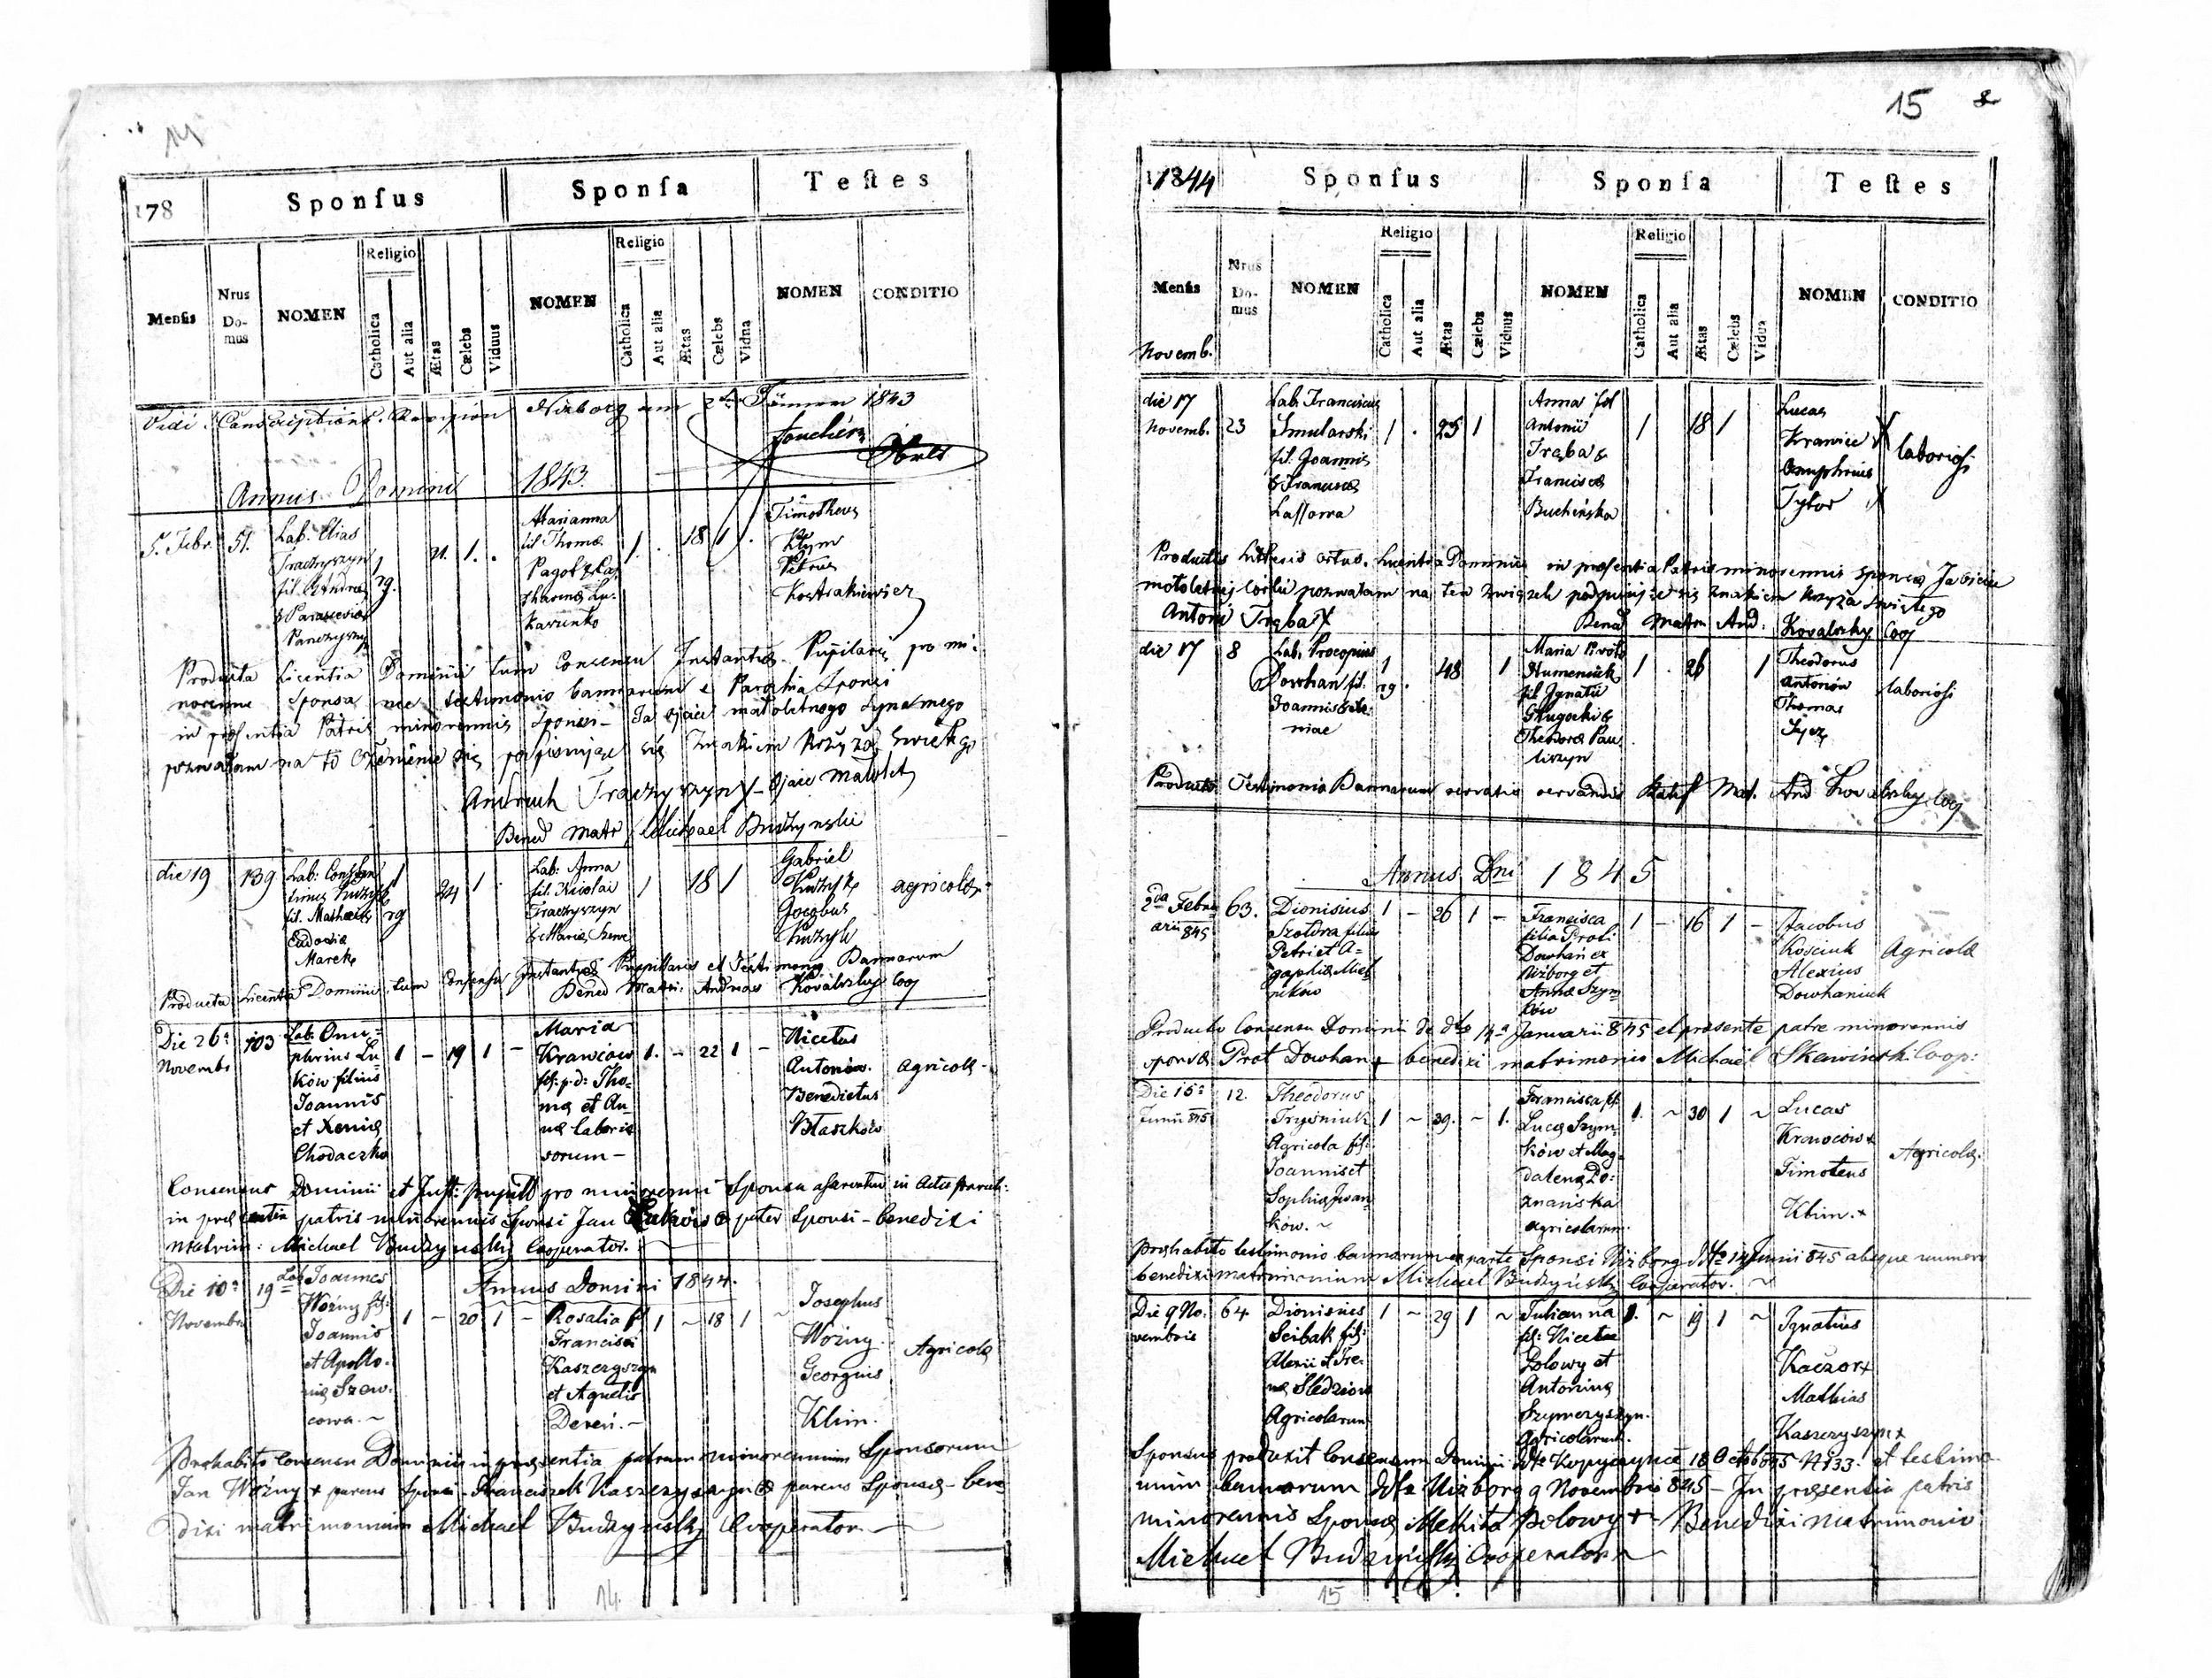 14
178
Sponſus
Sponſa
Teſtes
Menſis
Nrus Do-mus
NOMEN
Religio
Catholica
Aut alia
Ætas
Cælebs
Viduus
NOMEN
Religio
Catholica
Aut alia
Ætas
Cælebs
Vidua
NOMEN
CONDITIO
Vidi Conscriptions Revision Nizborg am 2 Jänner 1843
Annus Domini 1843.
5. Febr. 51.
Lab. Elias
Traczyszyn
fil. Andreæ
& Parasceviæ
Panczyszyn
1 rg. 21. 1.
Marianna
fil Thomæ
1. 18 1
Timotheus
Klym
Petrus
Kostrakiewicz
Producta Licentia Dominii cum Consensu Instantiæ Pupilaris pro mi:
norenne Sponsa nec testimonio bannorum e Parochia Sponsi
in præsentia Patris minorennis Sponsi - Ja ojciec małoletnego Syna mego
pozwalam na to Ożenienie się podpisując się Znakiem Krzyża Swiętego
Andruch Traczyszyn X - Ojciec Małolet
Bened Matr Michael Budzynski
die 19 139
fil. Mathæi &
Eudociæ
Marek
1 rg 24 1
Lab: Anna
fil. Nicolai
Traczyszyn
& Mariæ
1 18 1
Gabriel
Jacobus
agricolæ
Producta Licentia Dominii cum Consensu Instantiæ Pupillaris et Testimonio Bannorum
Bened Matri: Andreas Kovalszky Coop
Die 26a
Novemb
103
Lab. Onu=
phrius Lu
ków filius
Joannis
et Xeniæ
Chodaczko
1 - 19 1 -
Maria
Krawców
fil: p.d: Tho-
mæ et An
næ labori
sorum -
1. - 22 1 -
Nicetas
Antonów.
Benedictus
Błaszków
Agricolæ -
Consensus Dominii et Inst: pupill pro minorenni Sponsa asservatur in Actis paroch:
in præsentia patris minorennis Sponsi Jan Luków pater Sponsi - benedixi
Matrim: Michael Budzynsky Cooperator.
Annus Domini 1844.
Die 10a
Novembr
19
Lab Joannes
Woźny fil:
Joannis
et Apollo-
niæ Szew-
cowa. ~
1 - 20 1 -
Rosalia f
Francisci
Kaszczyszyn
et Agnetis
Dereń. ~
1 ~ 18 1 ~
Josephus
Woźny.
Georgius
Klim.
Agricolæ
Prohabito Consensu Dominii in præsentia patrum minorennium Sponsorum
Jan Woźny + parens Sponsi - Franciszek Kaszczyszyn parens Sponsæ - bene
dixi matrimonium Michael Budzynsky Cooperator
14.
15
1844
Sponſus
Sponſa
Teſtes
Menſis
Nrus Do-mus
NOMEN
Religio
Catholica
Aut alia
Ætas
Cælebs
Viduus
NOMEN
Religio
Catholica
Aut alia
Ætas
Cælebs
Vidua
NOMEN
CONDITIO
Novemb.
die 17
Novemb. 23
Lab. Franciscus
Smularski
fil. Joannis
& Franciscæ
Lassowa
1 . 25 1
Anna fil
Antonii
Trąba &
Franciscæ
Buchińska
1 18 1
Lucas
Krawiec X
Onuphrius
Tytor X
laboriosi
Productis Litteris ortus. Licentia Dominii in præsentia Patris minorennis sponsæ Ja ojciec
małoletniej Córki pozwalam na ten związek podpisuję się znakiem krzyża świętego
Antoni Trąba X Bened Matr And: Kovalszky Coop
die 17 8
Lab. Procopius
Dowhan fil.
Joannis &
1 rg . 48 1
Maria 1º voto
Humeniuk
fil Ignatii
Długocki &
Theodoræ Pau
liszyn
1 . 26 1
Theodorus
Antonów
Thomas
laboriosi
Producto Testimonio Bannorum servatis servandis Matr. And Kovalszky Coop
Annus Dni 1845
2da Febru
arii 845
63.
Dionisius
Szoldra filius
Petri et A=
gaphiæ Miel
ników
1 - 26 1 -
Francisca
filia Proti
Dowhań ex
Niżborg et
Annæ Szym
ków
1 - 16 1 -
Jacobus
Kościuk
Alexius
Dowhaniuk
Agricolæ
Producto Consensu Dominii de dto 14a Januarii 845 et præsente patre minorennis
sponsæ Prot Dowhan + benedixi matrimonio Michaël Skawiński Coop:
Die 15a
Junii 845
12.
Theodorus
Tryśniuk
Agricola fil:
Joannis et
Sophiæ Iwan
ków. ~
1 ~ 39. ~ 1.
Francisca fil
Lucæ Szym
ków et Mag=
dalenæ Po:
znańska
agricolarum.
1. ~ 30 1 ~
Lucas
Krawców +
Timoteus
Klim. +
Agricolæ.
Prohabito testimonio bannorum ex parte Sponsi Niżborg dto 14 Junii 845 absque numero
benedixi matrimonium Michael Budzynsky Cooperator. ~
Die 9 No.
vembris
64
Dionisius
Scibak fil:
Alexii et Ire-
næ Śledziow
Agricolarum
1 ~ 29 1 ~
Julianna
fil: Nicetæ
Polowy et
Antoninæ
Szymczyszyn.
Agricolarum.
1. ~ 19 1 ~
Ignatius
Kaczor +
Mathias
Kaszczyszyn +
Sponsus produxit Consensum Dominii dto Kopyczynce 18 Octob 845 N 133. et testimo
nium bannorum dto Niżborg 9 Novembris 845 - In præsentia patris
minorennis Sponsæ Mekita Polowy + - Benedixi Matrimonio
Michael Budzyńsky Cooperator
15